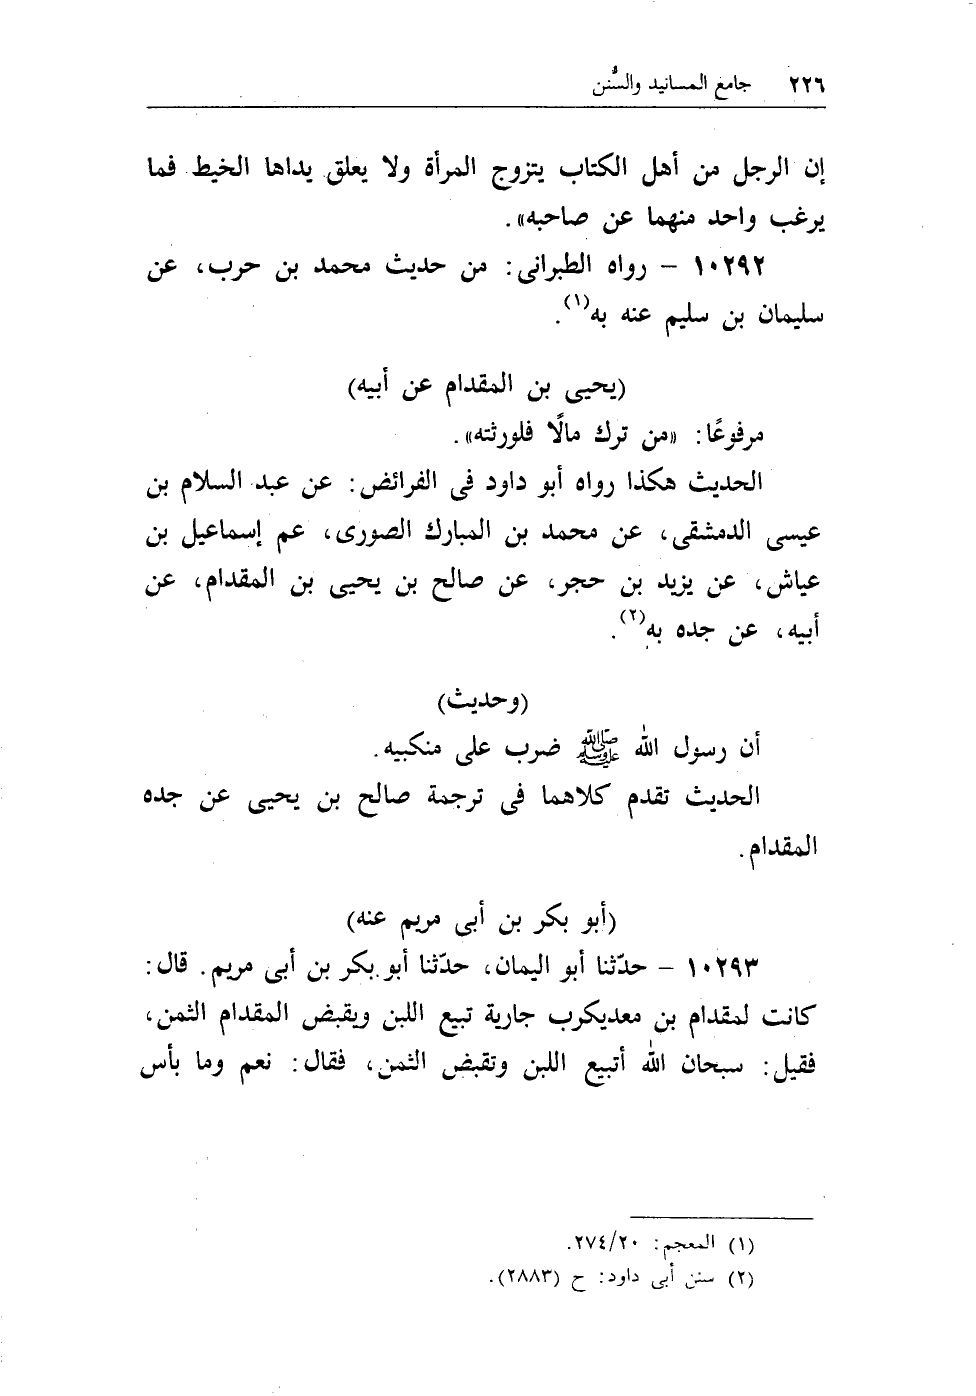 ٢٢٦ جامع المسانيد والسُّنن
إن الرجل من أهل الكتاب يتزوج المرأة ولا يعلق يداها الخيط فما
يرغب واحد منهما عن صاحبه».
١٠٢٩٢ - رواه الطبرانى: من حديث محمد بن حرب، عن
سليمان بن سليم عنه به(١).
(يحيى بن المقدام عن أبيه)
مرفوعًا: «من ترك مالًا فلورثته».
الحديث هكذا رواه أبو داود فى الفرائض: عن عبد السلام بن
عيسى الدمشقى، عن محمد بن المبارك الصورى، عم إسماعيل بن
عياش، عن يزيد بن حجر، عن صالح بن يحيى بن المقدام، عن
أبيه، عن جده به(٢).
(وحديث)
أن رسول الله ﷺ ضرب على منكبيه.
الحديث تقدم كلاهما فى ترجمة صالح بن يحيى عن جده
المقدام.
(أبو بكر بن أبى مريم عنه)
١٠٢٩٣ - حدّثنا أبو اليمان، حدّثنا أبو بكر بن أبى مريم. قال:
كانت لمقدام بن معديكرب جارية تبيع اللبن ويقبض المقدام الثمن،
فقيل: سبحان الله أتبيع اللبن وتقبض الثمن، فقال: نعم وما بأس
(١) المعجم: ٢٧٤/٢٠.
(٢) سنن أبى داود: ح (٢٨٨٣).